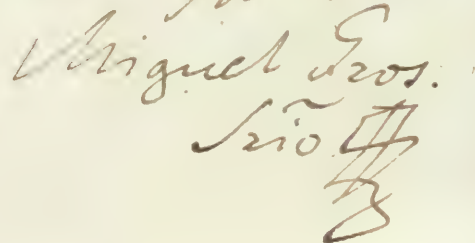 Miguel Gros.
Sriõ